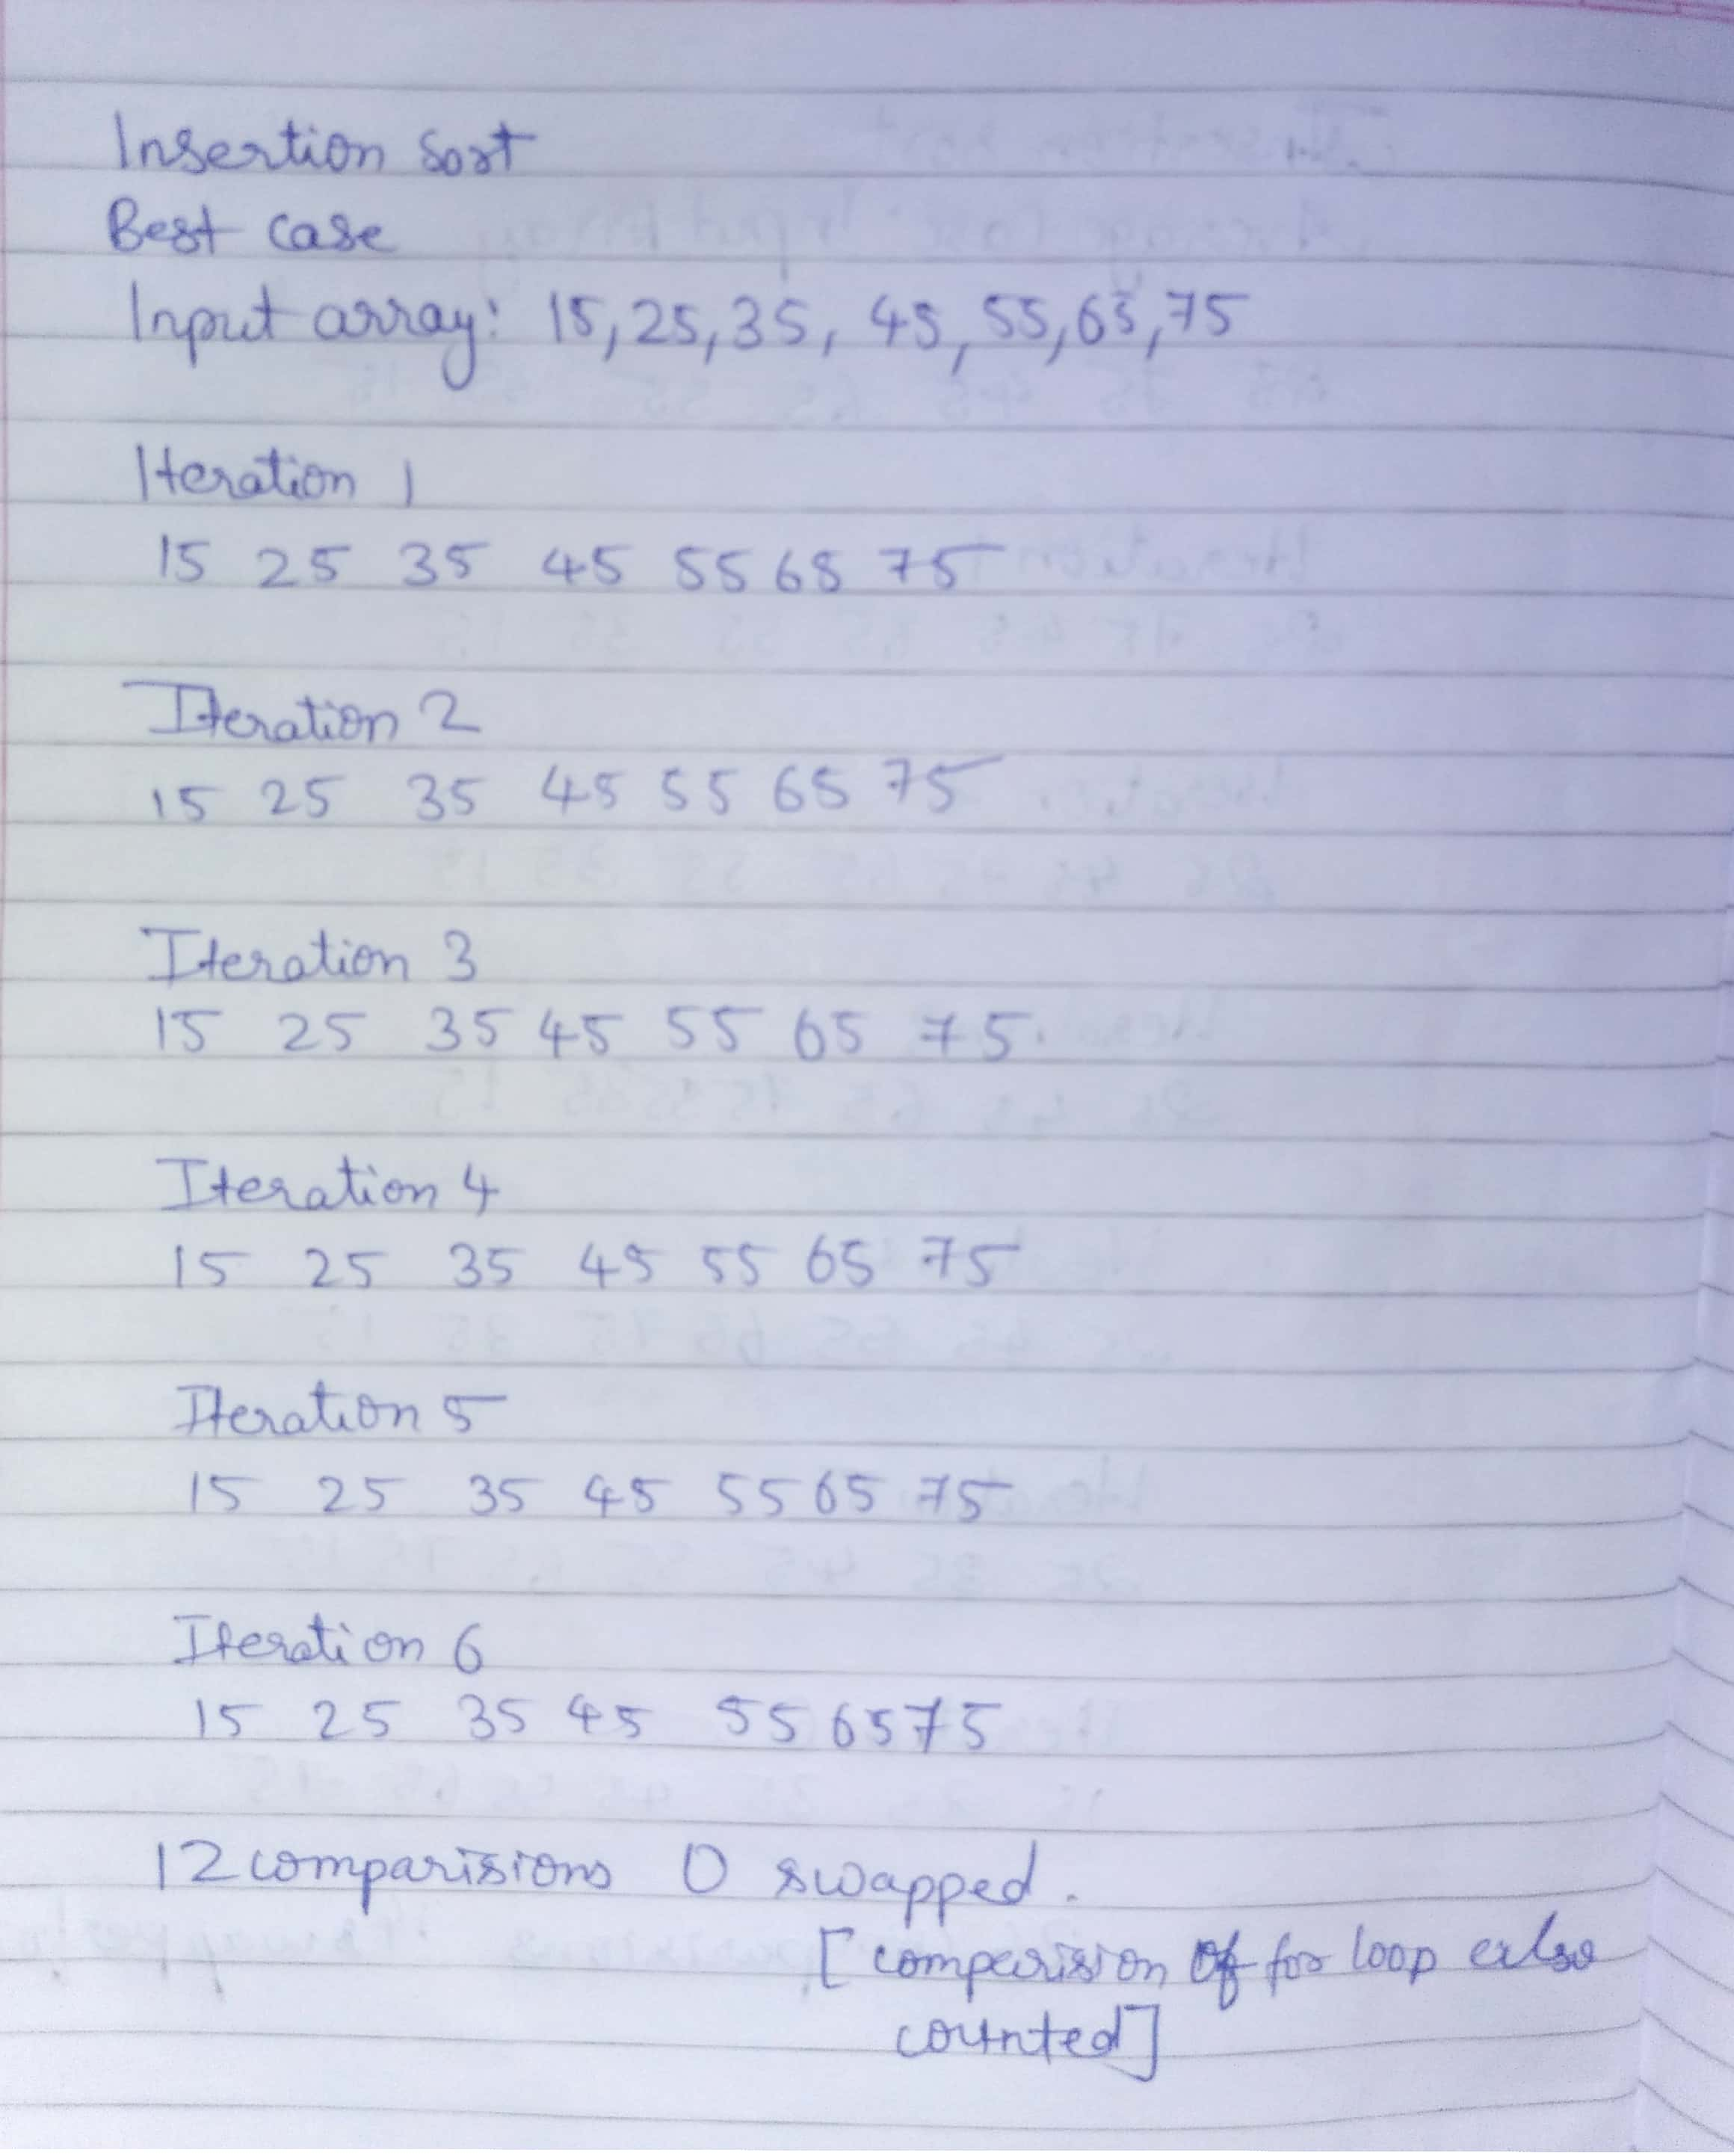 Insertion Sort
Best case
Input array: 15, 25, 35, 45, 55, 65, 75
Iteration 1
15 25 35 45 55 65 75
Iteration 2
15 25 35 45 55 65 75
Iteration 3
15 25 35 45 55 65 75.
Iteration 4
15 25 35 45 55 65 75
Iteration 5
15 25 35 45 55 65 75
Iteration 6
15 25 35 45 55 65 75
12 comparisions 0 swapped.
[comparision of for loop also
counted]